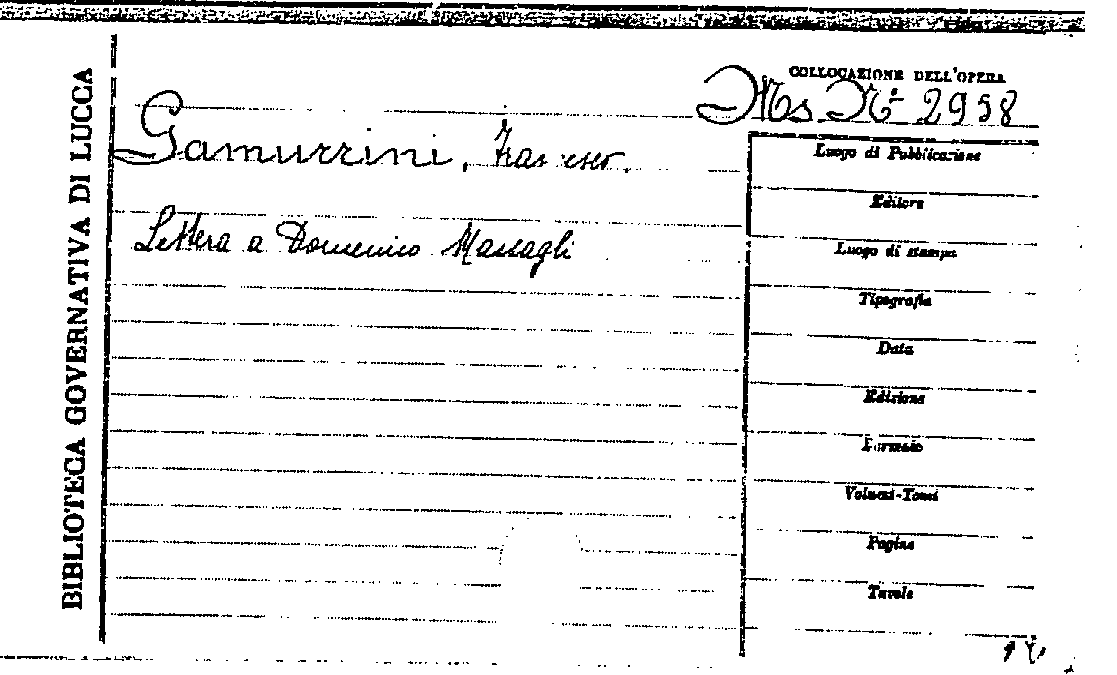 BIBLIOTECA GOVERNATIVA DI LUCCA
COLLOCAZIONE DELL'OPERA
Ms. N° 2958
Gamurrini, Francesco.
Lettera a Domenico Massagli
Luogo di Pubblicazione
Editore
Luogo di stampa
Tipografia
Data
Edizione
Formato
Volumi-Tomi
Pagine
Tavole